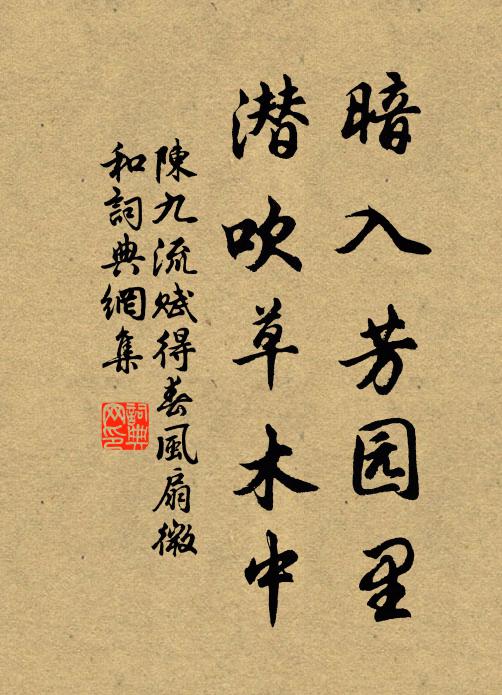 暗入芳园里
潜吹草木中
陳九流赋得春風扇微
和詞典網集
詞典
网印